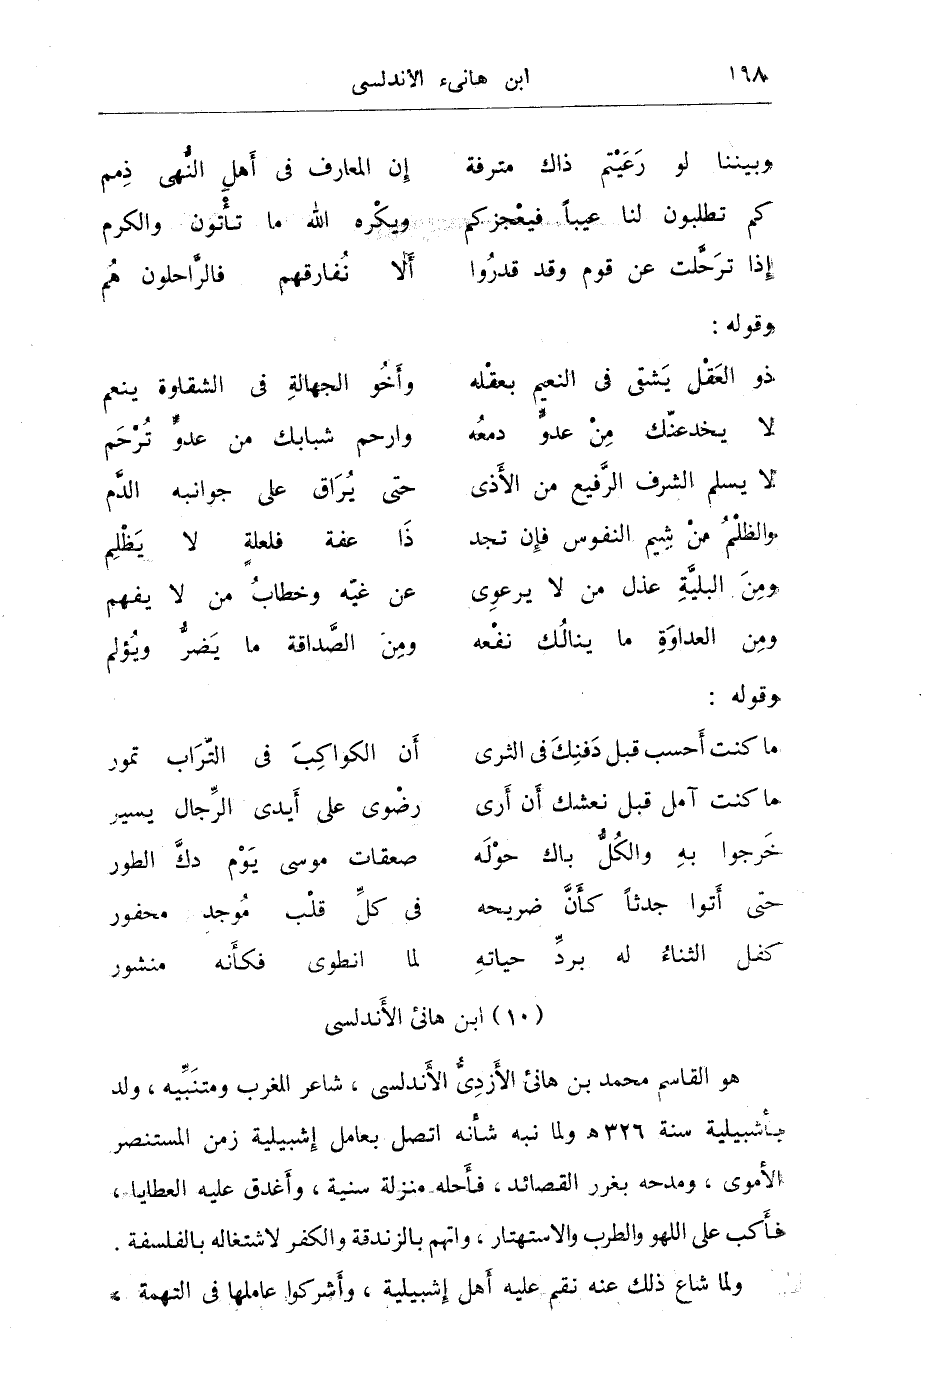 ١٩٨ ابن هانىء الأندلسى
وبيننا لو رَعَيْتم ذاك مترفة إن المعارف فى أَهلِ النُّهى ذِمم
كم تطلبون لنا عيباً فيعْجزكم ويكْره الله ما تأْتون والكرم
إِذا ترَحَّلت عن قوم وقد قدرُوا أَلا نُفارقهم فالرَّاحلون هُم
وقوله :
ذو العَقْل يَشقى فى النعيم بعقْله وأَخُو الجهالةِ فى الشقاوة ينعم
لا يخدعنّك مِنْ عدوٍّ دمعُه وارحم شبابك من عدوٍّ تُرْحَم
لا يسلم الشرف الرَّفيع من الأَذى حتى يُرَاق على جوانبه الدَّم
والظلْمُ منْ شِيم النفوس فإِن تجد ذَا عفة فلعلةٍ لا يَظْلِم
ومِنَ البليَّةِ عذل من لا يرعوِى عن غيّه وخطابُ من لا يفهم
ومِن العداوَةِ ما ينالُك نفْعه ومِنَ الصَّداقة ما يَضرُّ ويُؤلم
وقوله :
ما كنت أَحسب قبل دَفنِكَ فى الثرى أَن الكواكِبَ فى التّرَاب تمور
ما كنت آمل قبل نعشك أَن أَرى رضْوى على أَيدى الرِّجال يسير
خَرجوا بهِ والكُلُّ باك حوْلَه صعقات موسى يَوْم دكَّ الطور
حتى أَتوا جدثاً كأَنَّ ضريحه فى كلِّ قلْب مُوجدٍ محفور
كفل الثناءُ له بردِّ حياتهِ لما انطوى فكأَنه منشور
(١٠) ابن هانئ الأَندلسى
هو القاسم محمد بن هانئ الأَزدِىُّ الأَندلسى ، شاعر المغرب ومتنَبِّيه ، ولد
بأَشبيلية سنة ٣٢٦ه ولما نبه شأنه اتصل بعامل إِشبيلية زمن المستنصر
الأَموى ، ومدحه بغرر القصائد ، فأَحله منزلة سنية ، وأَغدق عليه العطايا ،
فأَكب على اللهو والطرب والاستهتار ، واتهم بالزندقة والكفر لاشتغاله بالفلسفة .
ولما شاع ذلك عنه نقم عليه أَهل إِشبيلية ، وأَشركوا عاملها فى التهمة ،